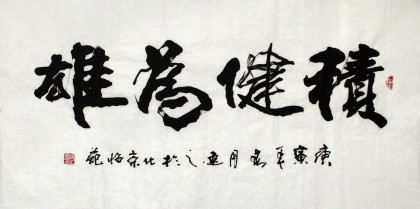 積健為雄
庚寅年秀月亞之於北京怡苑